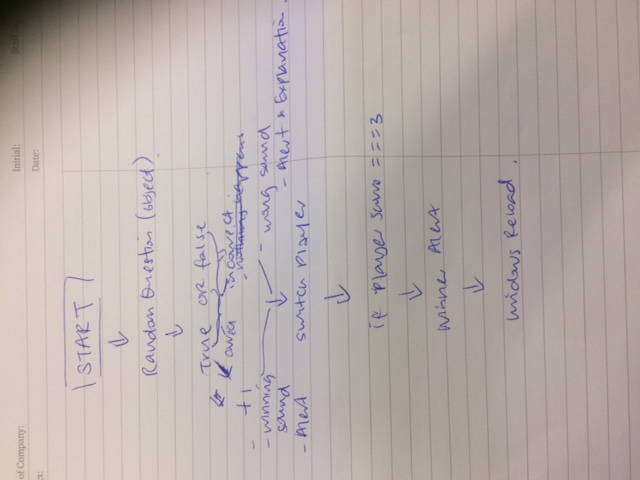 of Company:
Initial:
ct:
Date:
START
Random Question (object)
True or false
correct incorrect
+1
nothing happens
- winning sound
- wrong sound
- Alert
- Alert & Explanation
switch Player
if player score === 3
winner Alert
windows Reload.